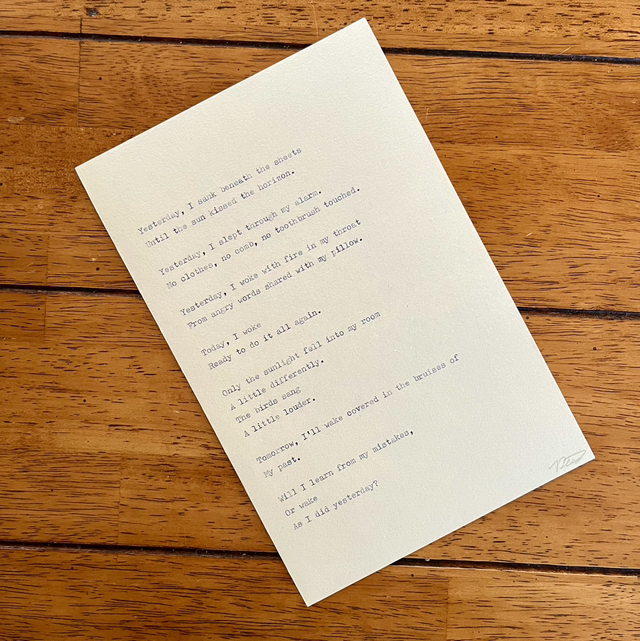 Yesterday, I sunk beneath the sheets
Until the sun kissed the horizon.
Yesterday, I slept through my alarm.
No clothes, no comb, no toothbrush touched.
Yesterday, I woke with fire in my throat
From angry words shared with my pillow.
Today, I woke
Ready to do it all again.
Only the sunlight fell into my room
A little differently.
The birds sang
A little louder.
Tomorrow, I'll wake covered in the bruises of
My past.
Will I learn from my mistakes,
Or wake
As I did yesterday?